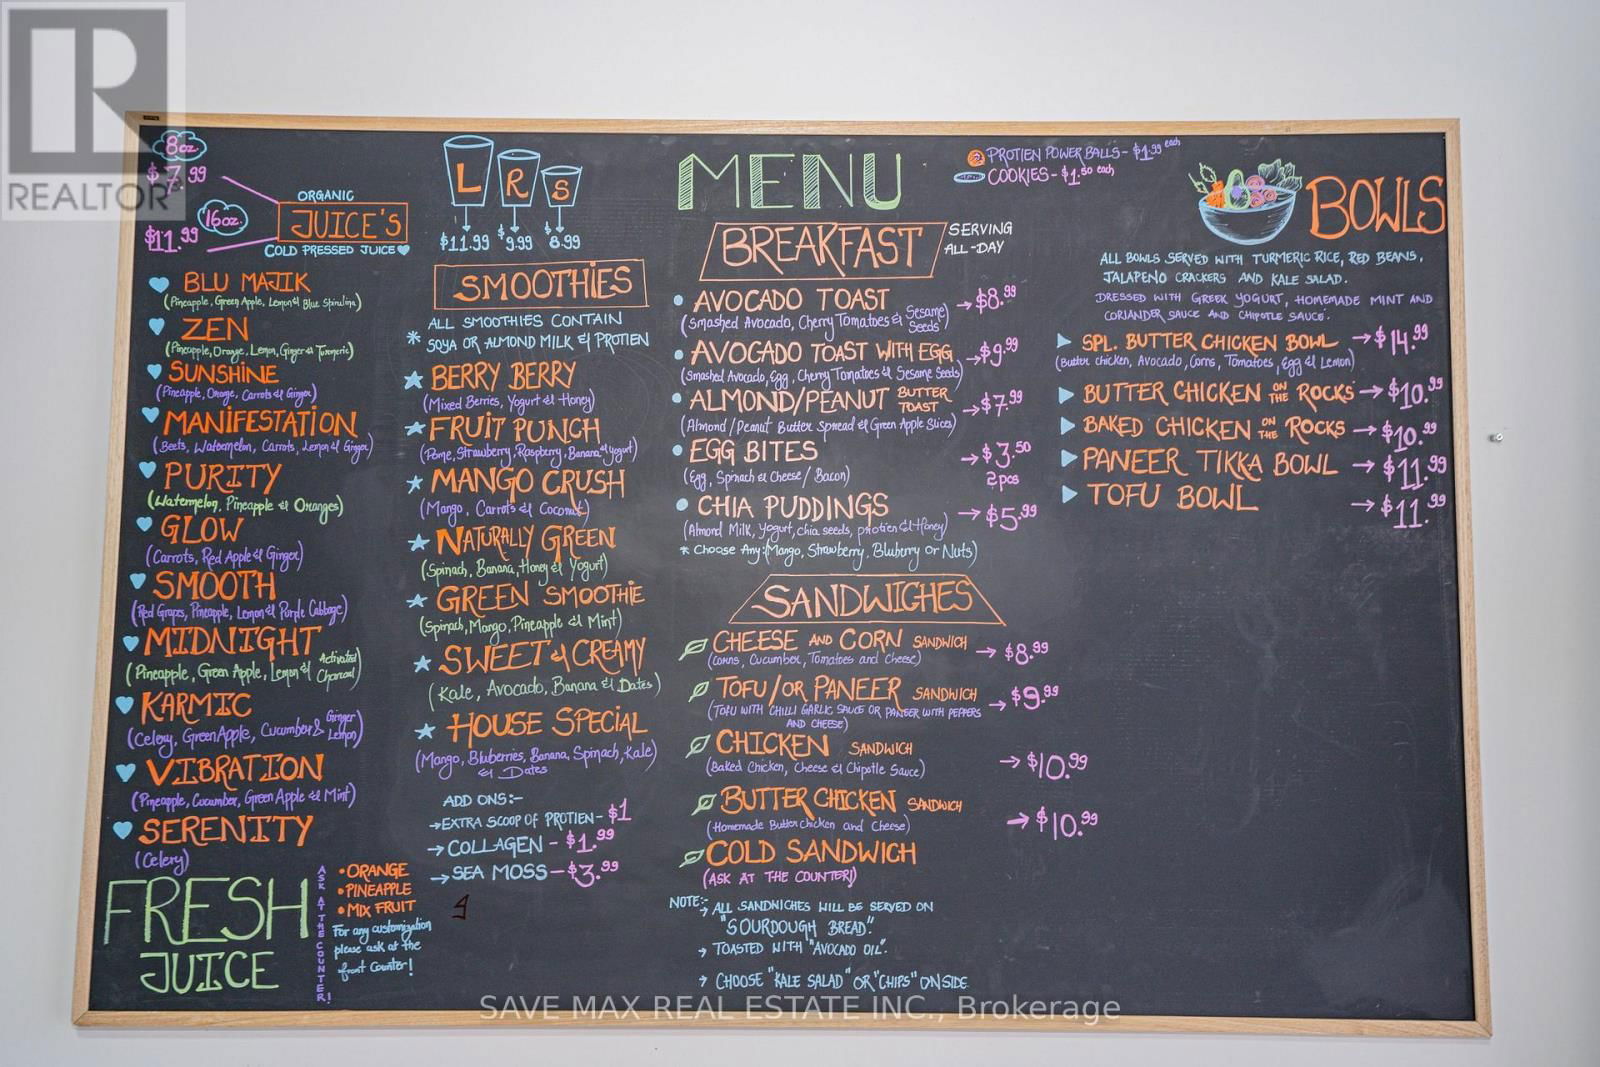 REALTOR
8oz.
$7.99
16oz.
$11.99
ORGANIC
JUICE'S
COLD PRESSED JUICE
BLU MAJIK
(Pineapple, Green Apple, Lemon & Blue Spirulina)
ZEN
(Pineapple, Orange, Lemon, Ginger & Turmeric)
SUNSHINE
(Pineapple, Orange, Carrots & Ginger)
MANIFESTATION
(Beets, Watermelon, Carrots, Lemon & Ginger)
PURITY
(Watermelon, Pineapple & Oranges)
GLOW
(Carrots, Red Apple & Ginger)
SMOOTH
(Red Grapes, Pineapple, Lemon & Purple Cabbage)
MIDNIGHT
(Pineapple, Green Apple, Lemon & Activated Charcoal)
KARMIC
(Celery, Green Apple, Cucumber & Ginger Lemon)
VIBRATION
(Pineapple, Cucumber, Green Apple & Mint)
SERENITY
(Celery)
FRESH
JUICE
ASK AT THE COUNTER!
• ORANGE
• PINEAPPLE
• MIX FRUIT
For any customization
please ask at the
front Counter!
L R S
$11.99 $9.99 $8.99
SMOOTHIES
* ALL SMOOTHIES CONTAIN
SOYA OR ALMOND MILK & PROTIEN
BERRY BERRY
(Mixed Berries, Yogurt & Honey)
FRUIT PUNCH
(Pome, Strawberry, Raspberry, Banana & Yogurt)
MANGO CRUSH
(Mango, Carrots & Coconut)
NATURALLY GREEN
(Spinach, Banana, Honey & Yogurt)
GREEN SMOOTHIE
(Spinach, Mango, Pineapple & Mint)
SWEET & CREAMY
(Kale, Avocado, Banana & Dates)
HOUSE SPECIAL
(Mango, Bluberries, Banana, Spinach, Kale)
& Dates
ADD ONS:-
→ EXTRA SCOOP OF PROTIEN - $1
→ COLLAGEN - $1.99
→ SEA MOSS - $3.99
MENU
PROTIEN POWER BALLS - $1.99 each
COOKIES - $1.50 each
BREAKFAST
SERVING
ALL-DAY
• AVOCADO TOAST → $8.99
(Smashed Avocado, Cherry Tomatoes & Sesame Seeds)
• AVOCADO TOAST WITH EGG → $9.99
(Smashed Avocado, Egg, Cherry Tomatoes & Sesame Seeds)
• ALMOND/PEANUT BUTTER TOAST → $7.99
(Almond/Peanut Butter Spread & Green Apple Slices)
• EGG BITES → $3.50
(Egg, Spinach & Cheese / Bacon) 2pcs
• CHIA PUDDINGS → $5.99
(Almond Milk, Yogurt, chia seeds, protien & Honey)
* Choose Any: (Mango, Strawberry, Bluberry or Nuts)
SANDWICHES
CHEESE AND CORN SANDWICH → $8.99
(Corns, Cucumber, Tomatoes and Cheese)
TOFU/OR PANEER SANDWICH → $9.99
(TOFU WITH CHILLI GARLIC SAUCE OR PANEER WITH PEPPERS
AND CHEESE)
CHICKEN SANDWICH → $10.99
(Baked Chicken, Cheese & Chipotle Sauce)
BUTTER CHICKEN SANDWICH → $10.99
(Homemade Butter Chicken and Cheese)
COLD SANDWICH
(ASK AT THE COUNTER!)
NOTE:-
→ ALL SANDWICHES WILL BE SERVED ON
"SOURDOUGH BREAD".
→ TOASTED WITH "AVOCADO OIL".
→ CHOOSE "KALE SALAD" OR "CHIPS" ON SIDE.
BOWLS
ALL BOWLS SERVED WITH TURMERIC RICE, RED BEANS,
JALAPENO CRACKERS AND KALE SALAD.
DRESSED WITH GREEK YOGURT, HOMEMADE MINT AND
CORIANDER SAUCE AND CHIPOTLE SAUCE.
SPL. BUTTER CHICKEN BOWL → $14.99
(Butter chicken, Avocado, Corns, Tomatoes, Egg & Lemon)
BUTTER CHICKEN ON THE ROCKS → $10.99
BAKED CHICKEN ON THE ROCKS → $10.99
PANEER TIKKA BOWL → $11.99
TOFU BOWL → $11.99
SAVE MAX REAL ESTATE INC., Brokerage